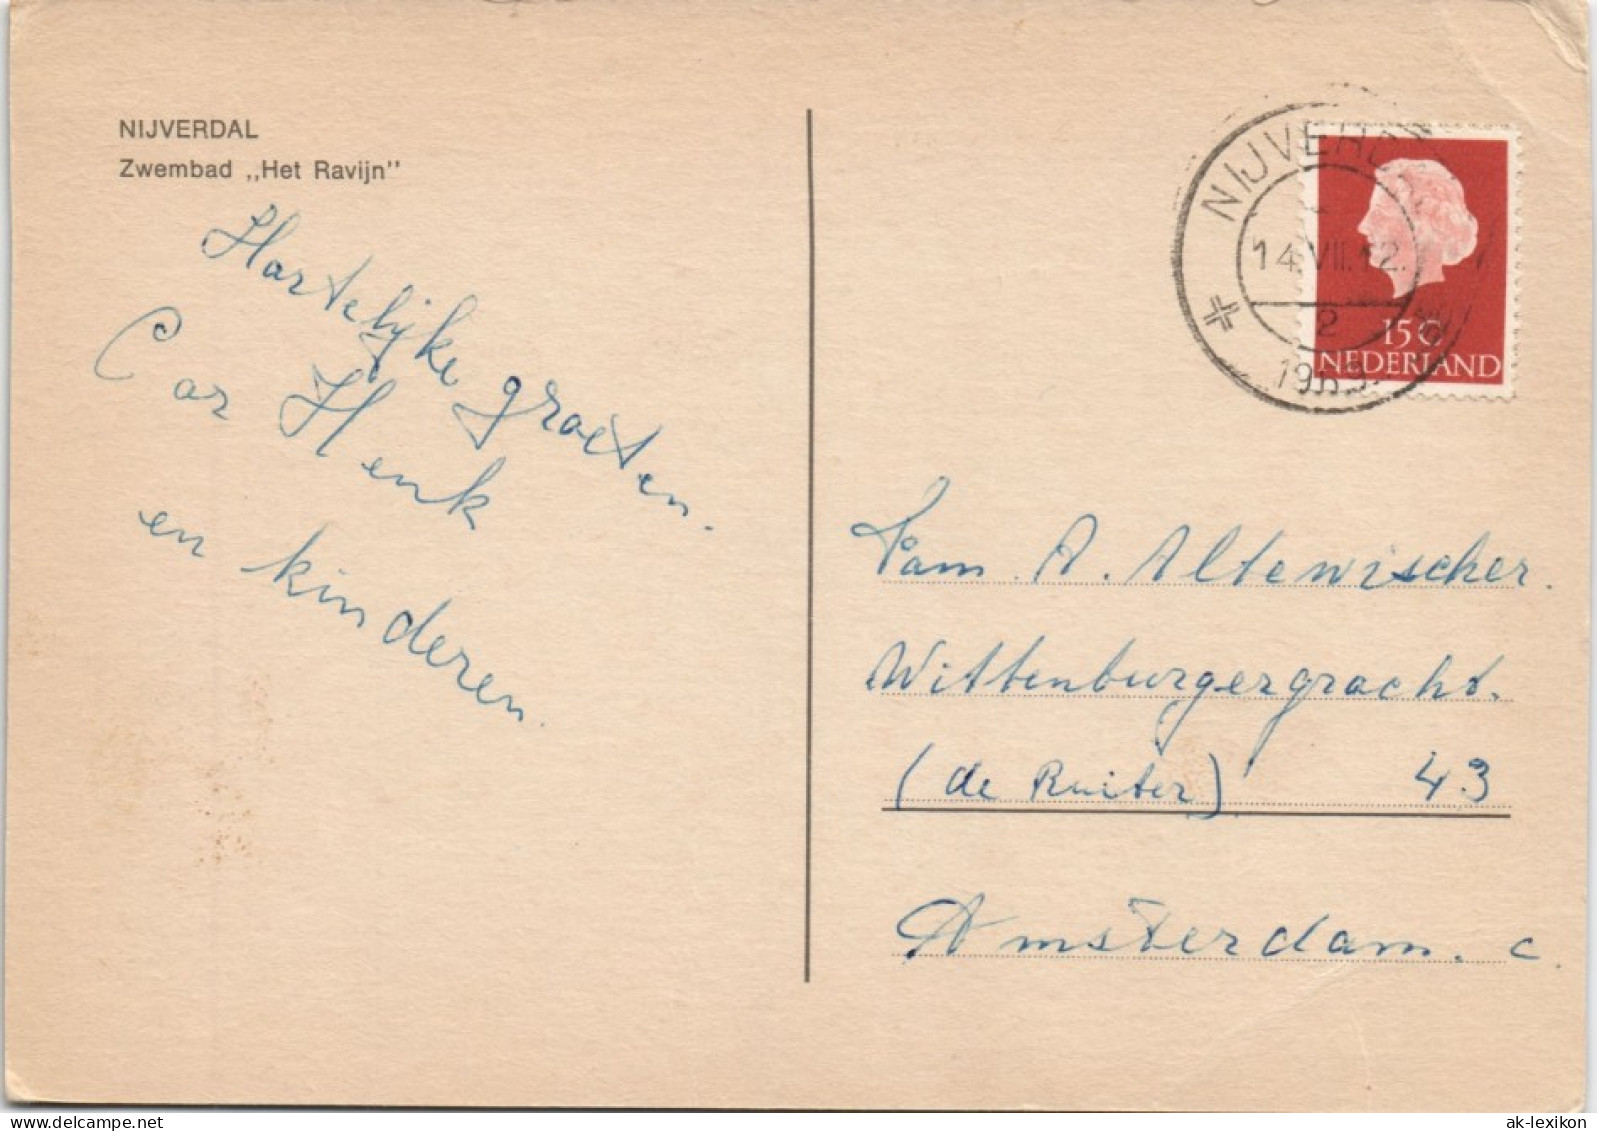 NIJVERDAL
Zwembad ,,Het Ravijn"
Hartelijke groeten.
Cor Henk
en kinderen.
NIJVERD
14.VII.12.
2
1969.
15 C
NEDERLAND
Fam. A. Altewischer.
Wittenburgergracht.
(de Ruiter) 43
Amsterdam. C.
ak-lexikon